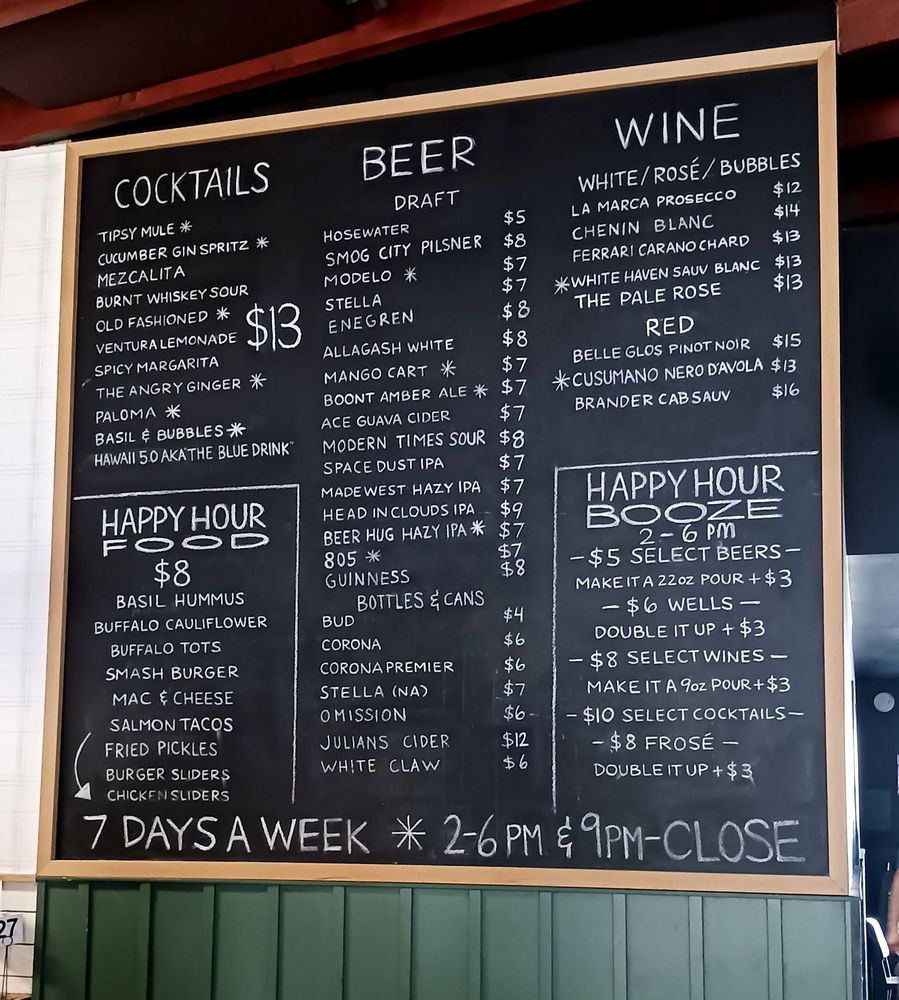 COCKTAILS
TIPSY MULE *
CUCUMBER GIN SPRITZ *
MEZCALITA
BURNT WHISKEY SOUR
OLD FASHIONED *
$13
VENTURA LEMONADE
SPICY MARGARITA
THE ANGRY GINGER *
PALOMA *
BASIL & BUBBLES *
HAWAII 5.0 AKA "THE BLUE DRINK"
HAPPY HOUR
FOOD
$8
BASIL HUMMUS
BUFFALO CAULIFLOWER
BUFFALO TOTS
SMASH BURGER
MAC & CHEESE
SALMON TACOS
FRIED PICKLES
BURGER SLIDERS
CHICKEN SLIDERS
BEER
DRAFT
HOSEWATER $5
SMOG CITY PILSNER $8
MODELO * $7
STELLA $7
ENEGREN $8
ALLAGASH WHITE $8
MANGO CART * $7
BOONT AMBER ALE * $7
ACE GUAVA CIDER $7
MODERN TIMES SOUR $8
SPACE DUST IPA $7
MADEWEST HAZY IPA $7
HEAD IN CLOUDS IPA $9
BEER HUG HAZY IPA * $7
805 * $7
GUINNESS $8
BOTTLES & CANS
BUD $4
CORONA $6
CORONA PREMIER $6
STELLA (NA) $7
OMISSION $6
JULIANS CIDER $12
WHITE CLAW $6
WINE
WHITE/ROSÉ/BUBBLES
LA MARCA PROSECCO $12
CHENIN BLANC $14
FERRARI CARANO CHARD $13
*WHITE HAVEN SAUV BLANC $13
THE PALE ROSE $13
RED
BELLE GLOS PINOT NOIR $15
*CUSUMANO NERO D'AVOLA $13
BRANDER CAB SAUV $16
HAPPY HOUR
BOOZE
2-6 PM
-$5 SELECT BEERS-
MAKE IT A 22oz POUR +$3
- $6 WELLS -
DOUBLE IT UP +$3
- $8 SELECT WINES -
MAKE IT A 9oz POUR +$3
- $10 SELECT COCKTAILS-
- $8 FROSÉ -
DOUBLE IT UP +$3
7 DAYS A WEEK * 2-6 PM & 9PM-CLOSE
27